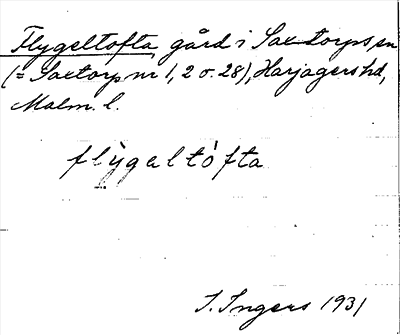 Flygeltofta, gård i Saxtorps sn
(= Saxtorp nr 1, 2 o. 28), Harjagers hd,
Malm. l.
flỳgeltòfta
I. Ingers 1931